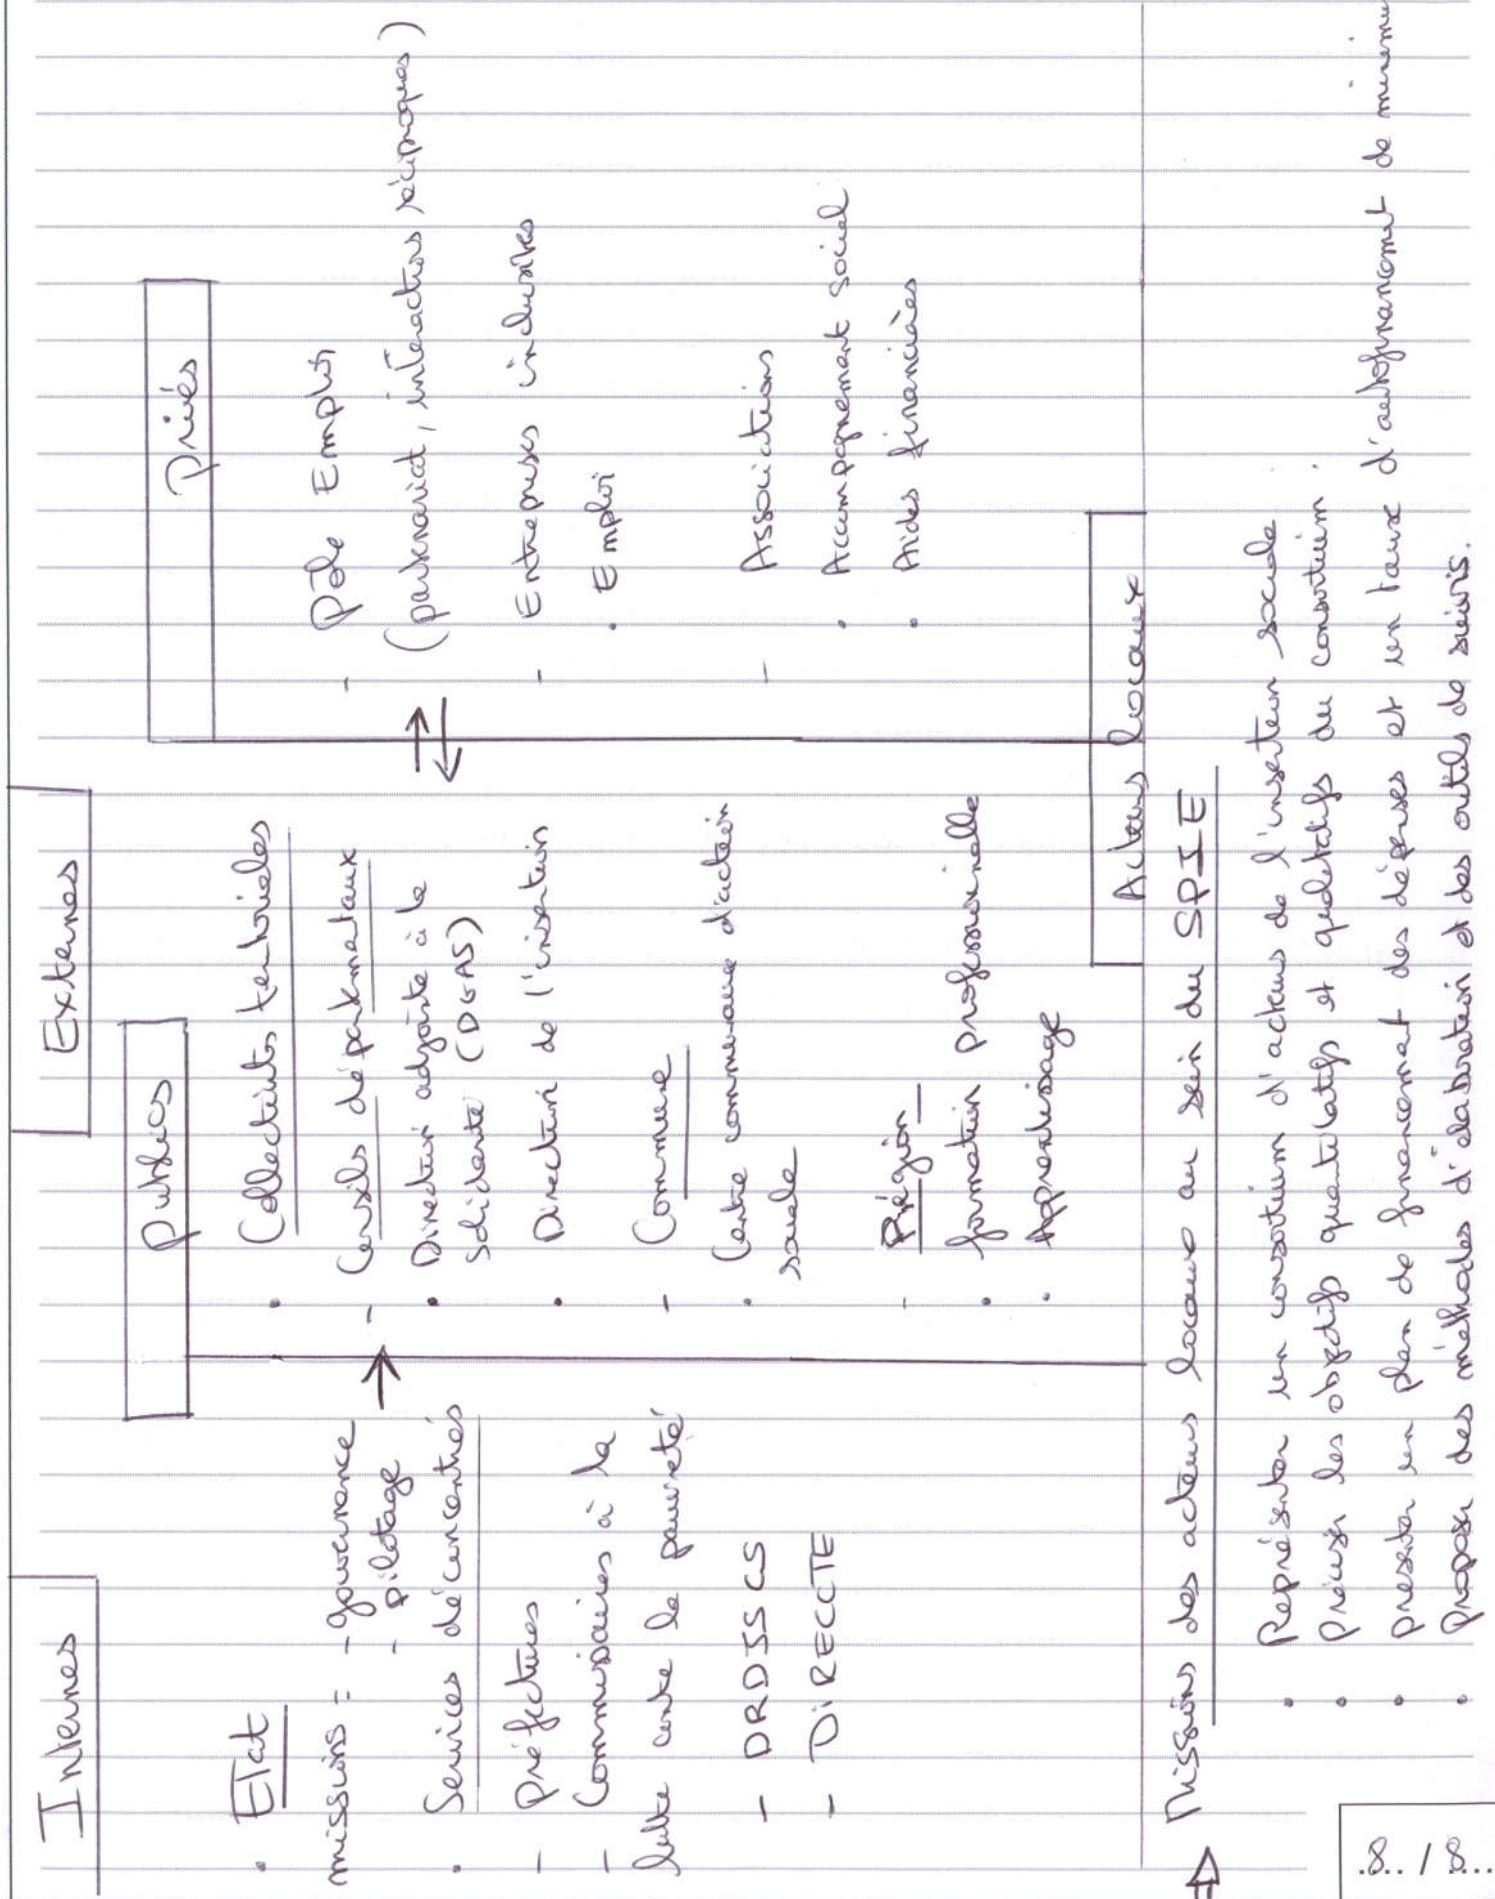 Internes
Externes
• Etat
missions = - gouvernance
- pilotage
• Services déconcentrés
- Préfectures
- Commissaires à la
lutte contre la pauvreté
- DRDJSCS
- DiRECCTE
Publics
• Collectivités territoriales
- Conseils départementaux
• Direction adjointe à la
solidarité (DGAS)
• Direction de l'insertion
- Commune
• Centre communaux d'action
sociale
- Région
• formation professionnelle
• Apprentissage
Privés
- Pôle Emploi
(partenariat, interactions réciproques)
- Entreprises inclusives
• Emploi
- Associations
• Accompagnement social
• Aides financières
Acteurs locaux
⇒ Missions des acteurs locaux au sein du SPIE
• Représenter un consortium d'acteurs de l'insertion sociale
• Préciser les objectifs quantitatifs et qualitatifs du consortium.
• présenter un plan de financement des dépenses et un taux d'autofinancement de
• Proposer des méthodes d'élaboration et des outils de suivis.
.8.. / 8...